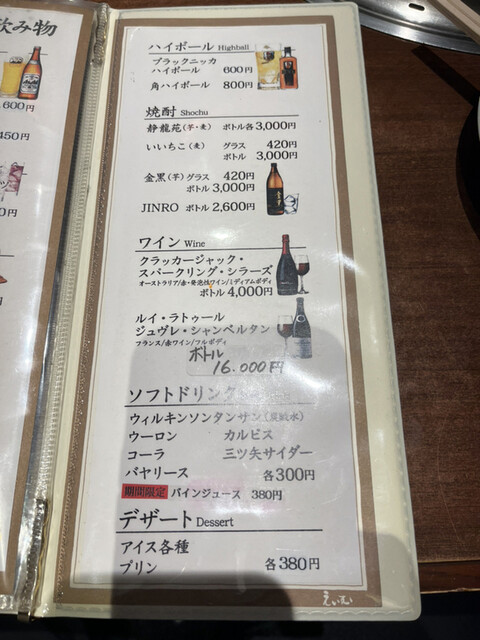 飲み物
,600円
450円
0円
ハイボール Highball
ブラックニッカ
ハイボール 600円
角ハイボール 800円
焼酎 Shochu
静龍苑(芋・麦) ボトル各3,000円
いいちこ(麦) グラス 420円
ボトル 3,000円
金黒(芋) グラス 420円
ボトル 3,000円
JINRO ボトル 2,600円
ワイン Wine
クラッカージャック・
スパークリング・シラーズ
オーストラリア/赤・発泡性ワイン/ミディアムボディ
ボトル 4,000円
ルイ・ラトゥール
ジュヴレ・シャンベルタン
フランス/赤ワイン/フルボディ
ボトル
16.000円
ソフトドリンク
ウィルキンソンタンサン(炭酸水)
ウーロン カルピス
コーラ 三ツ矢サイダー
バヤリース 各300円
期間限定 パインジュース 380円
デザート Dessert
アイス各種
プリン 各380円